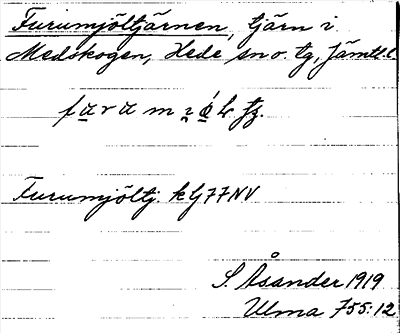 Furumjöltjärnen, tjärn i
Medskogen, Hede sn o. tg, Jämtl. l.
Furumjöltj. kly 77 NV
S. Åsander 1919
Ulma 755:12